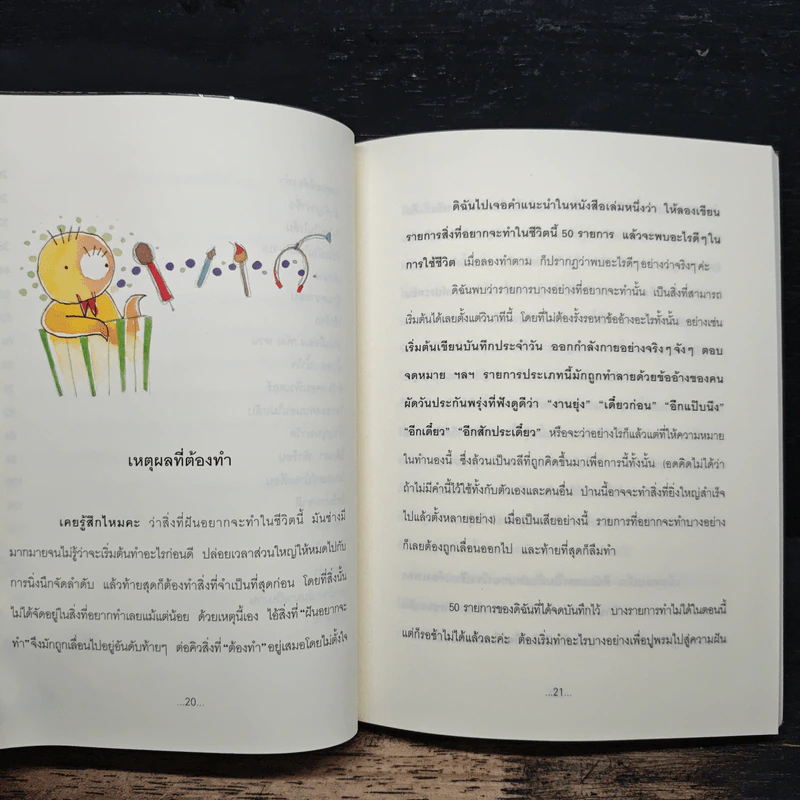 เหตุผลที่ต้องทำ
เคยรู้สึกไหมคะ ว่าสิ่งที่ฝันอยากจะทำในชีวิตนี้ มันช่างมี
มากมายจนไม่รู้ว่าจะเริ่มต้นทำอะไรก่อนดี ปล่อยเวลาส่วนใหญ่ให้หมดไปกับ
การนั่งนึกจัดลำดับ แล้วท้ายสุดก็ต้องทำสิ่งที่จำเป็นที่สุดก่อน โดยที่สิ่งนั้น
ไม่ได้จัดอยู่ในสิ่งที่อยากทำเลยแม้แต่น้อย ด้วยเหตุนี้เอง ไอ้สิ่งที่ "ฝันอยากจะ
ทำ" จึงมักถูกเลื่อนไปอยู่อันดับท้ายๆ ต่อคิวสิ่งที่ "ต้องทำ" อยู่เสมอโดยไม่ตั้งใจ
...20...
ดิฉันไปเจอคำแนะนำในหนังสือเล่มหนึ่งว่า ให้ลองเขียน
รายการสิ่งที่อยากจะทำในชีวิตนี้ 50 รายการ แล้วจะพบอะไรดีๆ ใน
การใช้ชีวิต เมื่อลองทำตาม ก็ปรากฏว่าพบอะไรดีๆ อย่างว่าจริงๆ ค่ะ
ดิฉันพบว่ารายการบางอย่างที่อยากจะทำนั้น เป็นสิ่งที่สามารถ
เริ่มต้นได้เลยตั้งแต่วินาทีนี้ โดยที่ไม่ต้องรั้งรอหาข้ออ้างอะไรทั้งนั้น อย่างเช่น
เริ่มต้นเขียนบันทึกประจำวัน ออกกำลังกายอย่างจริงๆ จังๆ ตอบ
จดหมาย ฯลฯ รายการประเภทนี้มักถูกทำลายด้วยข้ออ้างของคน
ผัดวันประกันพรุ่งที่ฟังดูดีว่า "งานยุ่ง" "เดี๋ยวก่อน" "อีกแป๊บนึง"
"อีกเดี๋ยว" "อีกสักประเดี๋ยว" หรือจะว่าอย่างไรก็แล้วแต่ที่ให้ความหมาย
ในทำนองนี้ ซึ่งล้วนเป็นวลีที่ถูกคิดขึ้นมาเพื่อการนี้ทั้งนั้น (อดคิดไม่ได้ว่า
ถ้าไม่มีคำนี้ไว้ใช้ทั้งกับตัวเองและคนอื่น ป่านนี้อาจจะทำสิ่งที่ยิ่งใหญ่สำเร็จ
ไปแล้วตั้งหลายอย่าง) เมื่อเป็นเสียอย่างนี้ รายการที่อยากจะทำบางอย่าง
ก็เลยต้องถูกเลื่อนออกไป และท้ายที่สุดก็ลืมทำ
50 รายการของดิฉันที่ได้จดบันทึกไว้ บางรายการทำไม่ได้ในตอนนี้
แต่ก็รอช้าไม่ได้แล้วละค่ะ ต้องเริ่มทำอะไรบางอย่างเพื่อปูพรมไปสู่ความฝัน
...21...